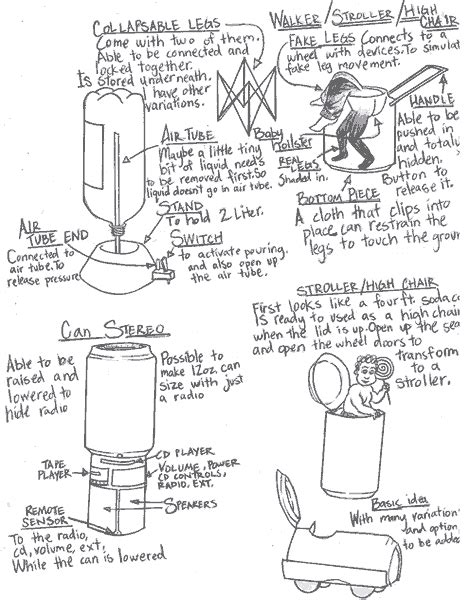 COLLAPSABLE LEGS
Come with two of them.
Able to be connected and
locked together.
Is stored underneath,
I have other
variations.
AIR TUBE
Maybe a little tiny
bit of liquid needs
to be removed first. So
liquid doesn't go in air tube.
STAND
To hold 2 Liter.
AIR
TUBE END
Connected to
air tube. To
release pressure
SWITCH
to activate pouring.
and also open up
the air tube.
WALKER / STROLLER / HIGH
CHAIR
FAKE LEGS Connects to a
wheel with devices. To simulat
fake leg movement.
HANDLE
Able to be
pushed in
and totall
hidden.
Button to
release it.
Baby
REAL
LEGS
Shaded in.
BOTTOM PIECE
A cloth that clips into
place, can restrain the
legs to touch the groun
Can Stereo
Able to be
raised and
lowered to
hide radio
Possible to
make 12oz. can
size with just
a radio
TAPE
PLAYER
CD PLAYER
VOLUME, POWER
CD CONTROLS,
RADIO, EXT.
SPEAKERS
REMOTE
SENSOR
To the radio,
cd, volume, ext.
While the can is lowered
STROLLER/HIGH CHAIR
First looks like a four ft. soda co
Is ready to used as a high chair
when the lid is up. Open up the sea
and open the wheel doors to
transform
to a
stroller.
Basic idea
With many variation
and option
to be added